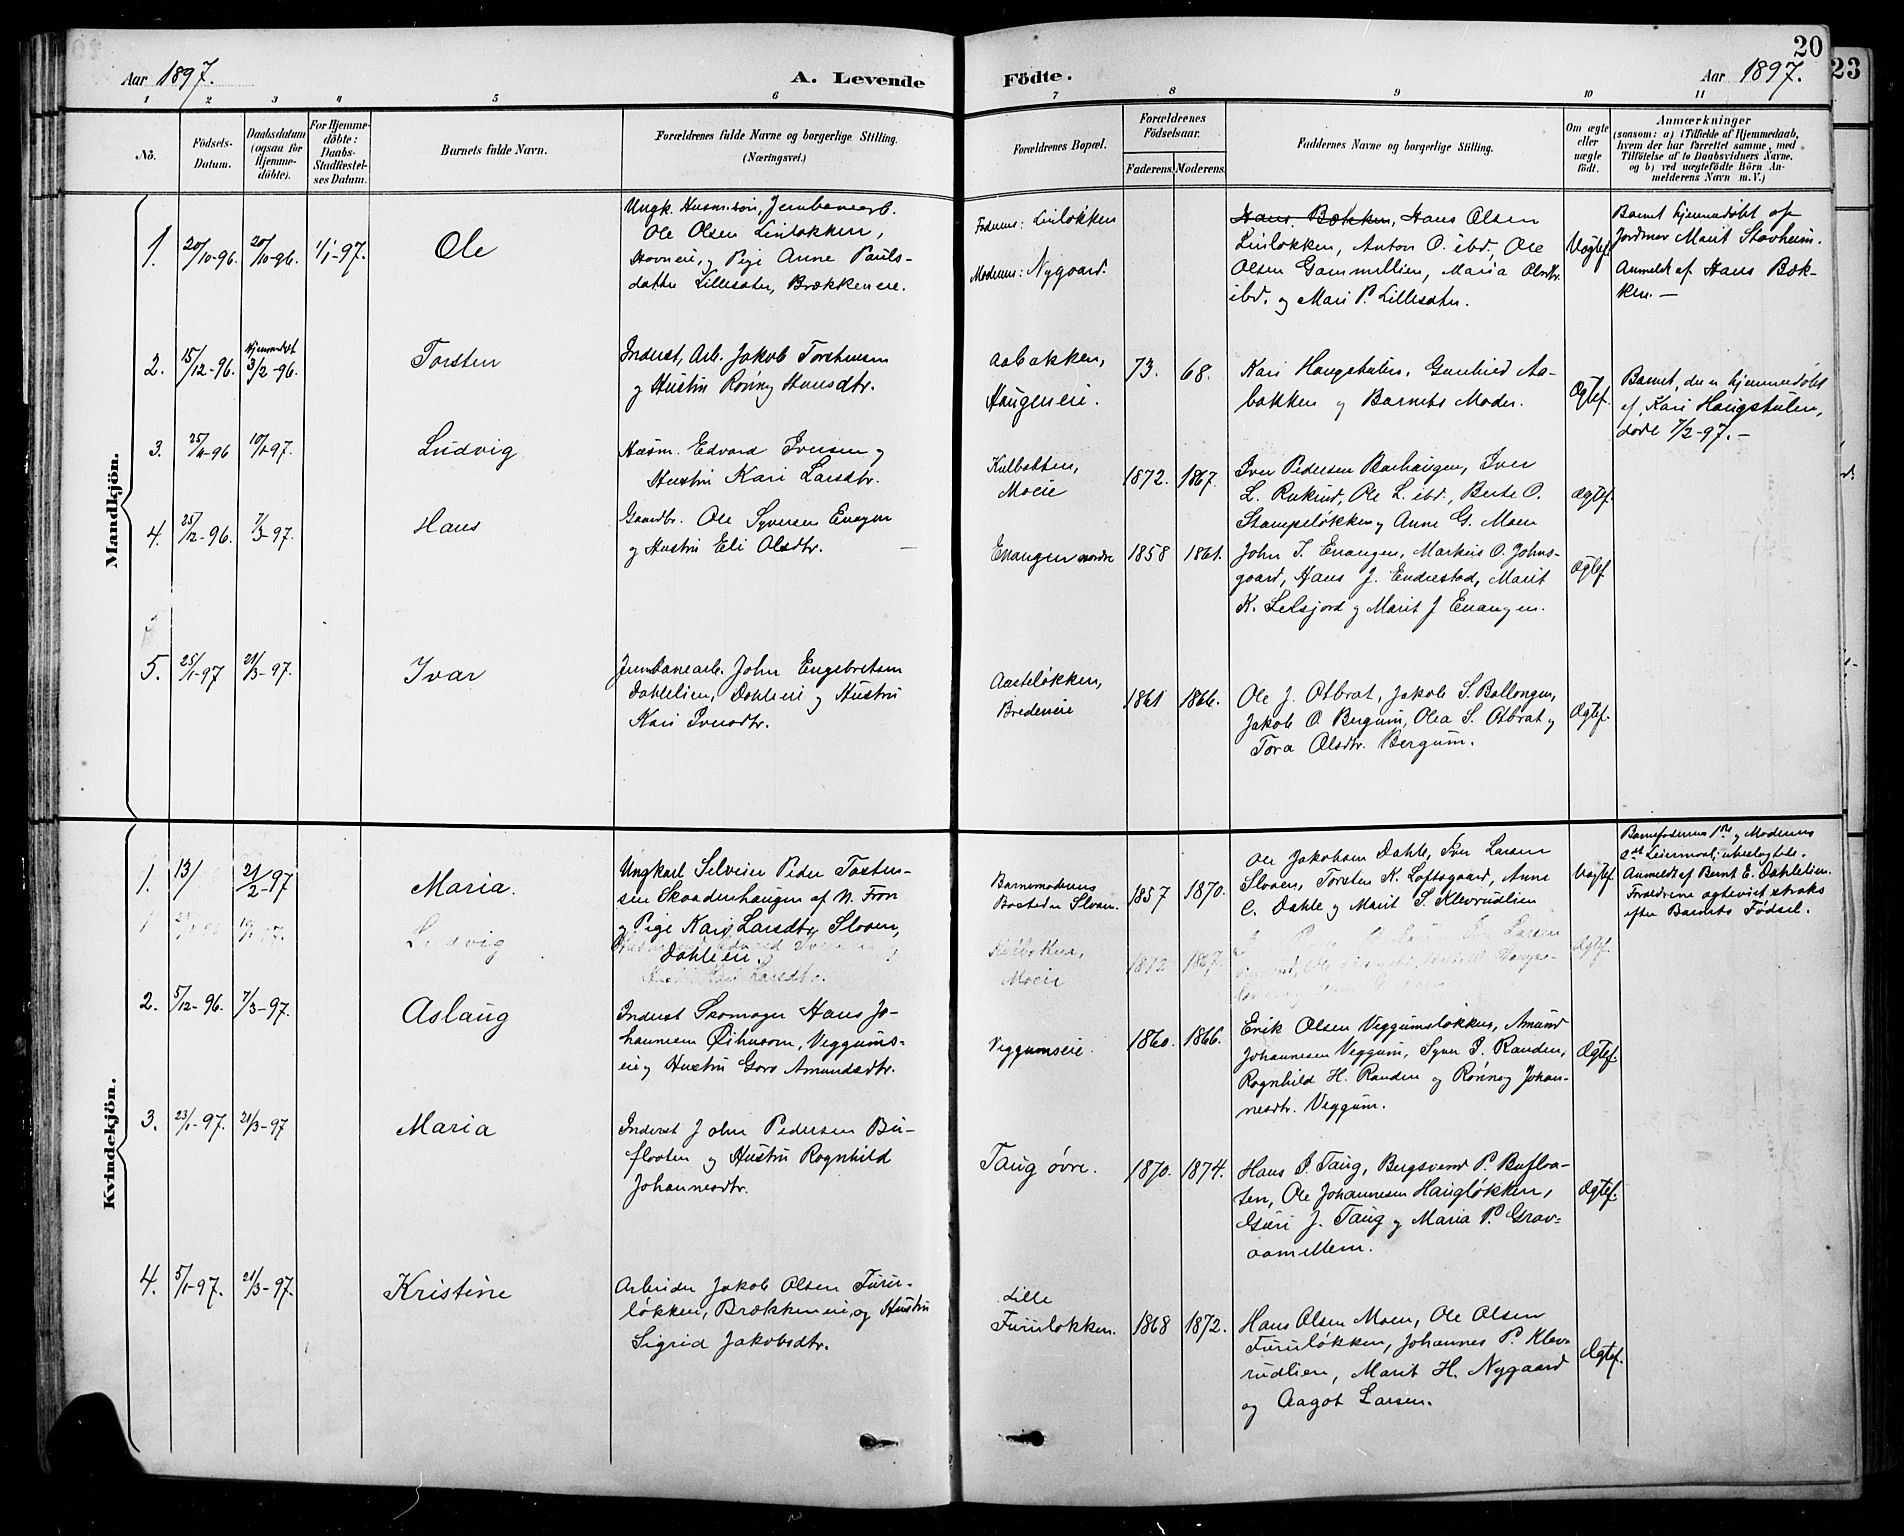 20
23
Aar 1897.
A. Levende Födte.
Aar 1897.
1 2 3 4 5 6 7 8 9 10 11
No.
Födsels-Datum.
Daabsdatum (ogsaa for Hjemme-döbte).
For Hjemme-döbte: Daabs-Stadfæstel-ses Datum.
Barnets fulde Navn.
Forældrenes fulde Navne og borgerlige Stilling. (Næringsvei.)
Forældrenes Bopæl.
Forældrenes Födselsaar.
Faderens. Moderens.
Faddernes Navne og borgerlige Stilling.
Om ægte eller uægte födt.
Anmærkninger
(saasom: a) i Tilfælde af Hjemmedaab, hvem der har forrettet samme, med Tilföielse af to Daabsvidners Navne. og b) ved uægtefödte Börn An-melderens Navn m. V.)
Mandkjön.
1. 20/10-96. 20/10-96. 1/1-97. Ole
Ungk. Husm.sön, Jernbanearb.
Ole Olsen Linløkken,
og Pige Anne Pauls-
datter Lillesæter, Brækkeneie.
Faderens: Linløkken
Moderens: Nygaard.
Hans Bækken, Hans Olsen
Linløkken, Anton O. ibd, Ole
Olsen Gammellien, Maria Olsdtr.
ibd. og Mari P. Lillesæter.
Uægtef.
Barnet hjemmedøbt af
Jordmor Marit Stavheim.
Anmeldt af Hans Bæk-
ken.—
2. 15/12-96. Hjemmedøbt 3/2-96. Torsten
Inderst, Arb. Jakob Torstensen
og Hustru Rønnøg Hansdtr.
Aabakken,
Haugeneie.
73. 68.
Kari Haugstulen, Gunhild Aa-
bakken og Barnets Moder.
Ægtef.
Barnet, der er hjemmedøbt
af Kari Haugstulen,
døde 7/2-97.—
3. 10/1-97. Ludvig
Husm. Edvard Iversen og
Hustru Kari Larsdtr.
Moeie
1872. 1867.
Iver Pedersen Barhaugen, Iver
L. Rukrud, Ole L. ibd., Berte O.
Stampeløkken og Anne G. Moen
Ægtef.
4. 25/12-96. 7/3-97. Hans
Gaardbr. Ole Syversen Enangen
og Hustru Eli Olsdtr.
Enangen nordre
1858 1861.
John I. Enangen, Markus O. Johns-
gaard, Hans J. Endrestad, Marit
K. Selsjord og Marit J Enangen.
Ægtef
5. 25/1-97 21/3-97. Ivar
Jernbanearb. John Engebretsen
Dahlelien, Dahleeie og Hustru
Kari Iversdtr.
Aasteløkken,
Bredeneie
1861 1866.
Ole J. Otbrat, Jakob S. Ballongen,
Jakob O. Bergum, Olea S. Otbrat og
Tora Olsdtr. Bergum.
Ægtef.
Kvindekjön.
1. 13/ 21/2-97 Maria.
Ungkarl Selveier Peder Tosten-
sen Skaadenhaugen af N. Fron
og Pige Kari Larsdtr. Sloen,
Dahleeie.
Barnemoderens
Bosted er Sloen.
1857 1870.
Ole Jakobsen Dahle, Iver Larsen
Sloen, Torsten K. Loftsgaard, Anne
C. Dahle og Marit S. Klevrudlien
Uægtef.
Barnefaderens 1ste og Moderens
2det Leiermaal;
Anmeldt af Bernt E. Dahlelien.
Forældrene ægteviet straks
efter Barnets Fødsel.
Ludvig
Moeie
1867.
Ægtef.
2. 5/12-96. 7/3-97. Aslaug
Inderst Skomager Hans Jo-
hannesen Øihusom, Veggums-
eie og Hustru Goro Amundsdtr.
Veggumseie.
1860. 1866.
Erik Olsen Veggumsløkken, Amund
Johannesen Veggum, Syver P. Randen,
Ragnhild H. Randen og Rønnøg Johan-
nesdtr. Veggum.
Ægtef.
3. 23/1-97. 21/3-97 Maria
Inderst John Pedersen Bu-
flaaten og Hustru Ragnhild
Johannesdtr.
Taug øvre.
1870. 1874.
Hans P. Taug, Bergsvend P. Bufloa-
ten, Ole Johannesen Haugløkken,
Guri J. Taug og Maria P. Grav-
aamellem.
Ægtef.
4. 5/1-97. 21/3-97. Kristine
Arbeider Jakob Olsen Furu-
løkken, Brækkeneie, og Hustru
Sigrid Jakobsdtr.
Lille
Furuløkken.
1868 1872.
Hans Olsen Moen, Ole Olsen
Furuløkken, Johannes P. Klev-
rudlien, Marit H. Nygaard
og Aagot Larsen.
Ægtef.